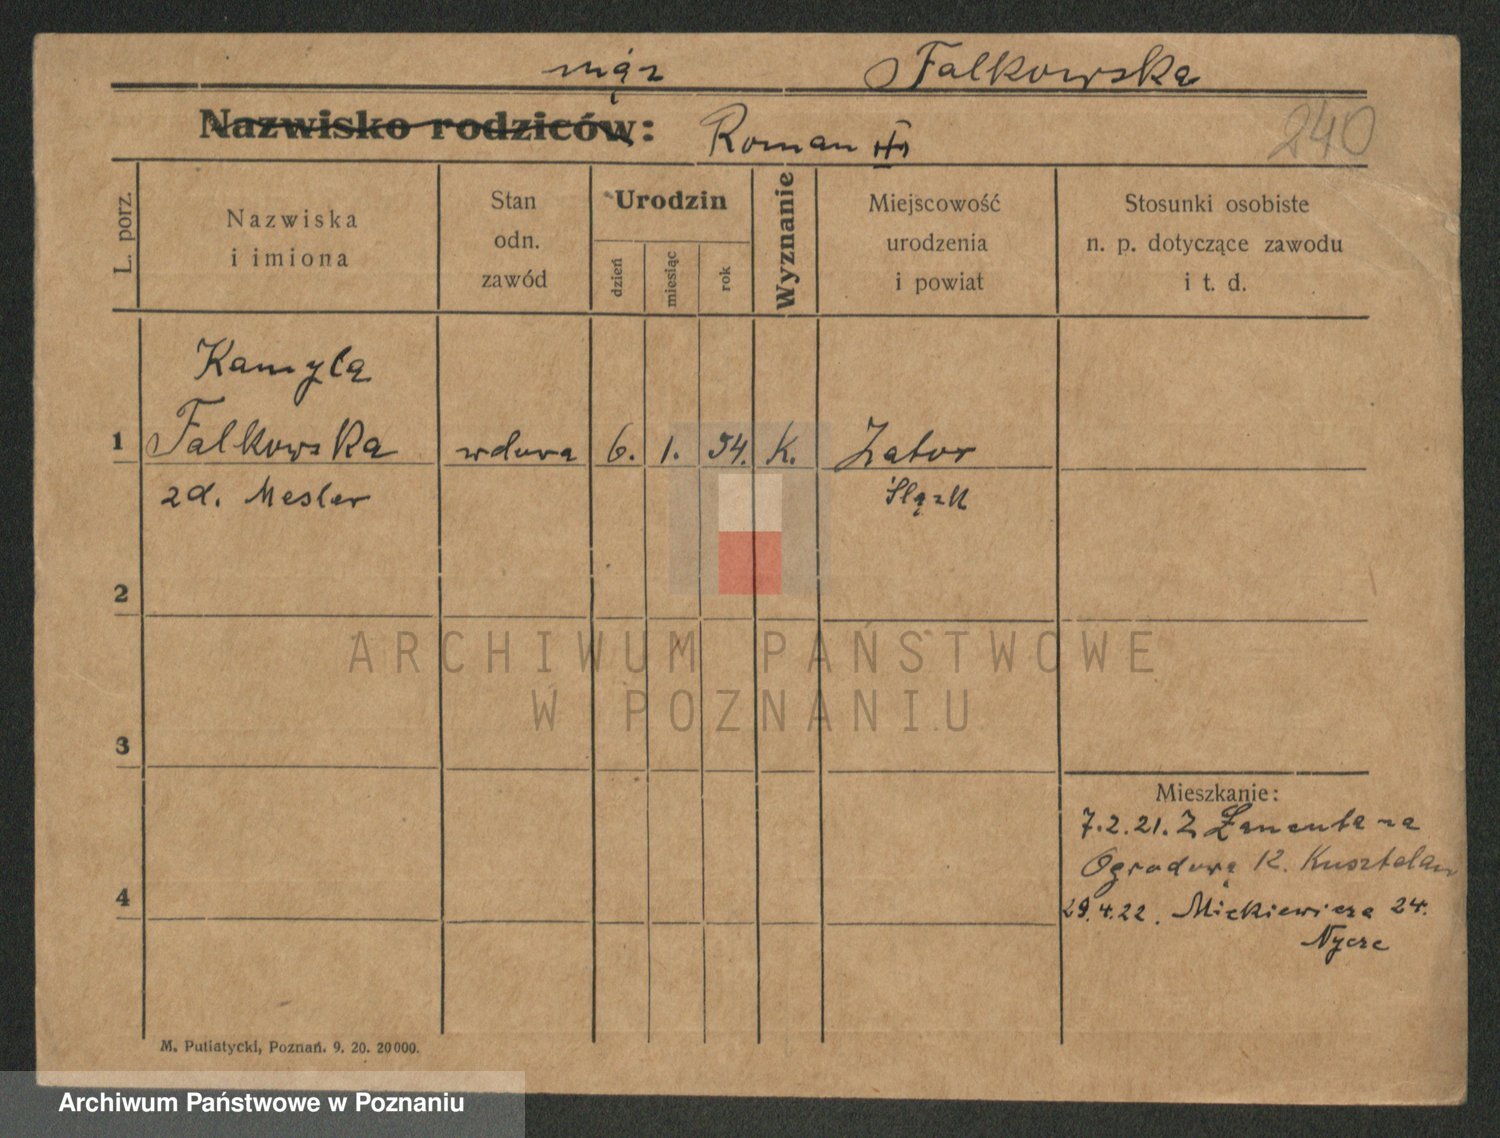 mąż Falkowska
Nazwisko rodziców: Roman
240
L. porz.
Nazwiska
i imiona
Stan
odn.
zawód
Urodzin
dzień
miesiąc
rok
Wyznanie
Miejscowość
urodzenia
i powiat
Stosunki osobiste
n. p. dotyczące zawodu
i t. d.
Kamyla
1 Falkowska wdowa 6. 1. 94. K. Zator
zd. Mesler Śląsk
2
ARCHIWUM PAŃSTWOWE
W POZNANIU
3
Mieszkanie:
7.2.21. Z
Ogrodową 12. Kusztelan
4
29.4.22. Mickiewicza 24.
Nycze
M. Putiatycki, Poznań. 9. 20. 20000.
Archiwum Państwowe w Poznaniu